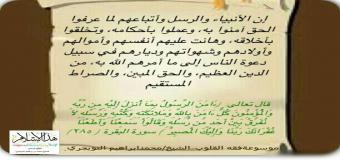 إن الأنبياء والرسل وأتباعهم لما عرفوا
الحق آمنوا به، وعملوا بأحكامه، وتخلقوا
بأخلاقه، وهانت عليهم أنفسهم وأموالهم
وأولادهم وشهواتهم وديارهم في سبيل
دعوة الناس إلى ما أمرهم الله به، من
الدين العظيم، والحق المبين، والصراط
المستقيم
قال تعالى ﴿ءَامَنَ الرَّسُولُ بِمَا أُنزِلَ إِلَيْهِ مِن رَّبِّهِ
وَالْمُؤْمِنُونَ كُلٌّ ءَامَنَ بِاللَّهِ وَمَلَائِكَتِهِ وَكُتُبِهِ وَرُسُلِهِ لَا
نُفَرِّقُ بَيْنَ أَحَدٍ مِّن رُّسُلِهِ وَقَالُوا سَمِعْنَا وَأَطَعْنَا
غُفْرَانَكَ رَبَّنَا وَإِلَيْكَ الْمَصِيرُ﴾ / سورة البقرة / ٢٨٥
موسوعة فقه القلوب الشيخ/محمد إبراهيم التويجري
هذا الإسلام